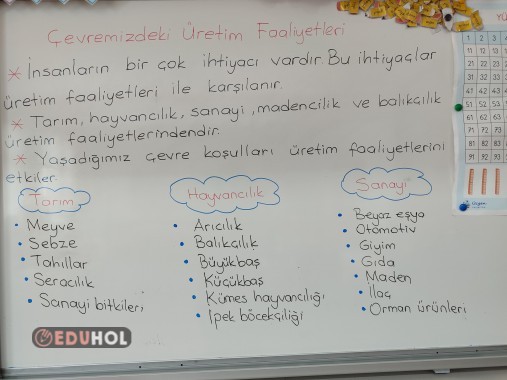 Çevremizdeki Üretim Faaliyetleri
* İnsanların bir çok ihtiyacı vardır. Bu ihtiyaçlar
üretim faaliyetleri ile karşılanır.
* Tarım, hayvancılık, sanayi, madencilik ve balıkçılık
üretim faaliyetlerindendir.
* Yaşadığımız çevre koşulları üretim faaliyetlerini
etkiler.
Tarım
• Meyve
• Sebze
• Tahıllar
• Seracılık
• Sanayi bitkileri
Hayvancılık
• Arıcılık
• Balıkçılık
• Büyükbaş
• Küçükbaş
• Kümes hayvancılığı
• İpek böcekçiliği
Sanayi
• Beyaz eşya
• Otomotiv
• Giyim
• Gıda
• Maden
• İlaç
• Orman ürünleri
EDUHOL
YÜ
1 2 3
11 12 13
21 22 23
31 32 33
41 42 43
51 52 53
61 62 63
71 72 73
81 82 83
91 92 93